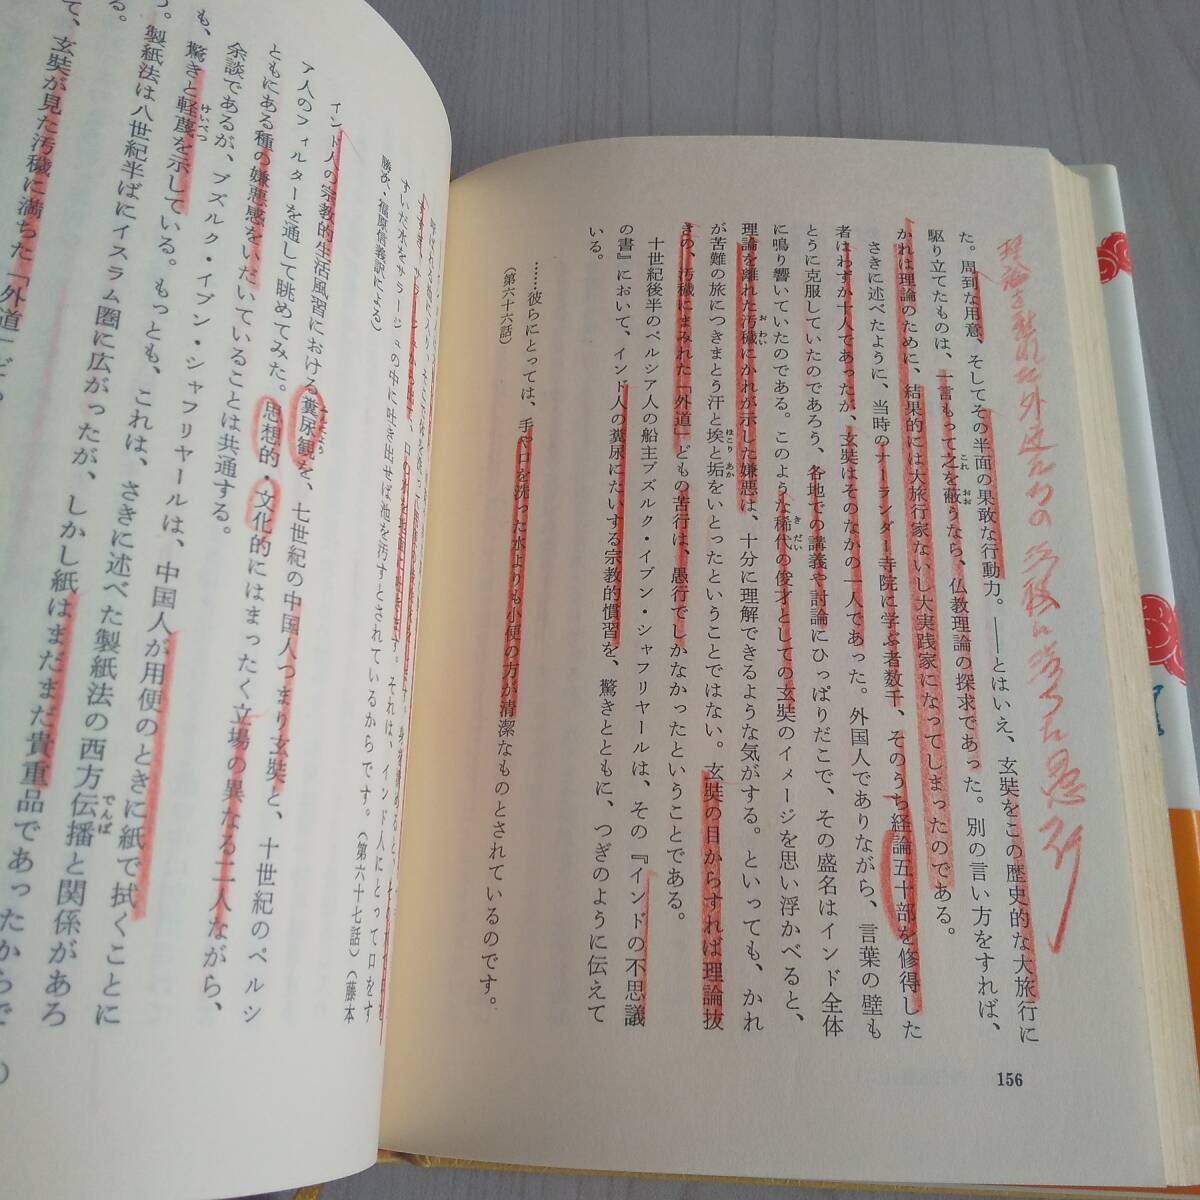 理論を離れた外道たちの汚穢に満ちた愚行
た。周到な用意、そしてその半面の果敢な行動力。――とはいえ、玄奘をこの歴史的な大旅行に
駆り立てたものは、一言もって之を蔽うなら、仏教理論の探求であった。別の言い方をすれば、
かれは理論のために、結果的には大旅行家ないし大実践家になってしまったのである。
さきに述べたように、当時のナーランダー寺院に学ぶ者数千、そのうち経論五十部を修得した
者はわずか十人であったが、玄奘はそのなかの一人であった。外国人でありながら、言葉の壁も
とうに克服していたのであろう、各地での講義や討論にひっぱりだこで、その盛名はインド全体
に鳴り響いていたのである。このような稀代の俊才としての玄奘のイメージを思い浮かべると、
理論を離れた汚穢にかれが示した嫌悪は、十分に理解できるような気がする。といっても、かれ
が苦難の旅につきまとう汗と埃と垢をいとったということではない。玄奘の目からすれば理論抜
きの、汚穢にまみれた「外道」どもの苦行は、愚行でしかなかったということである。
十世紀後半のペルシア人の船主ブズルク・イブン・シャフリヤールは、その『インドの不思議
の書』において、インド人の糞尿にたいする宗教的慣習を、驚きとともに、つぎのように伝えて
いる。
……彼らにとっては、手や口を洗った水よりも小便の方が清潔なものとされているのです。
(第六十六話)
156
すいだ水をサーラージュの中に吐き出せば池を汚すとされているからです。(第六十七話)(藤本
勝次・福原信義訳による)
インド人の宗教的生活風習における糞尿観を、七世紀の中国人つまり玄奘と、十世紀のペルシ
ア人のフィルターを通して眺めてみた。思想的・文化的にはまったく立場の異なる二人ながら、
ともにある種の嫌悪感をいだいていることは共通する。
余談であるが、ブズルク・イブン・シャフリヤールは、中国人が用便のときに紙で拭くことに
も、驚きと軽蔑を示している。もっとも、これは、さきに述べた製紙法の西方伝播と関係があろ
う。製紙法は八世紀半ばにイスラム圏に広がったが、しかし紙はまだまだ貴重品であったからで
る。
て、玄奘が見た汚穢に満ちた「外道」ど